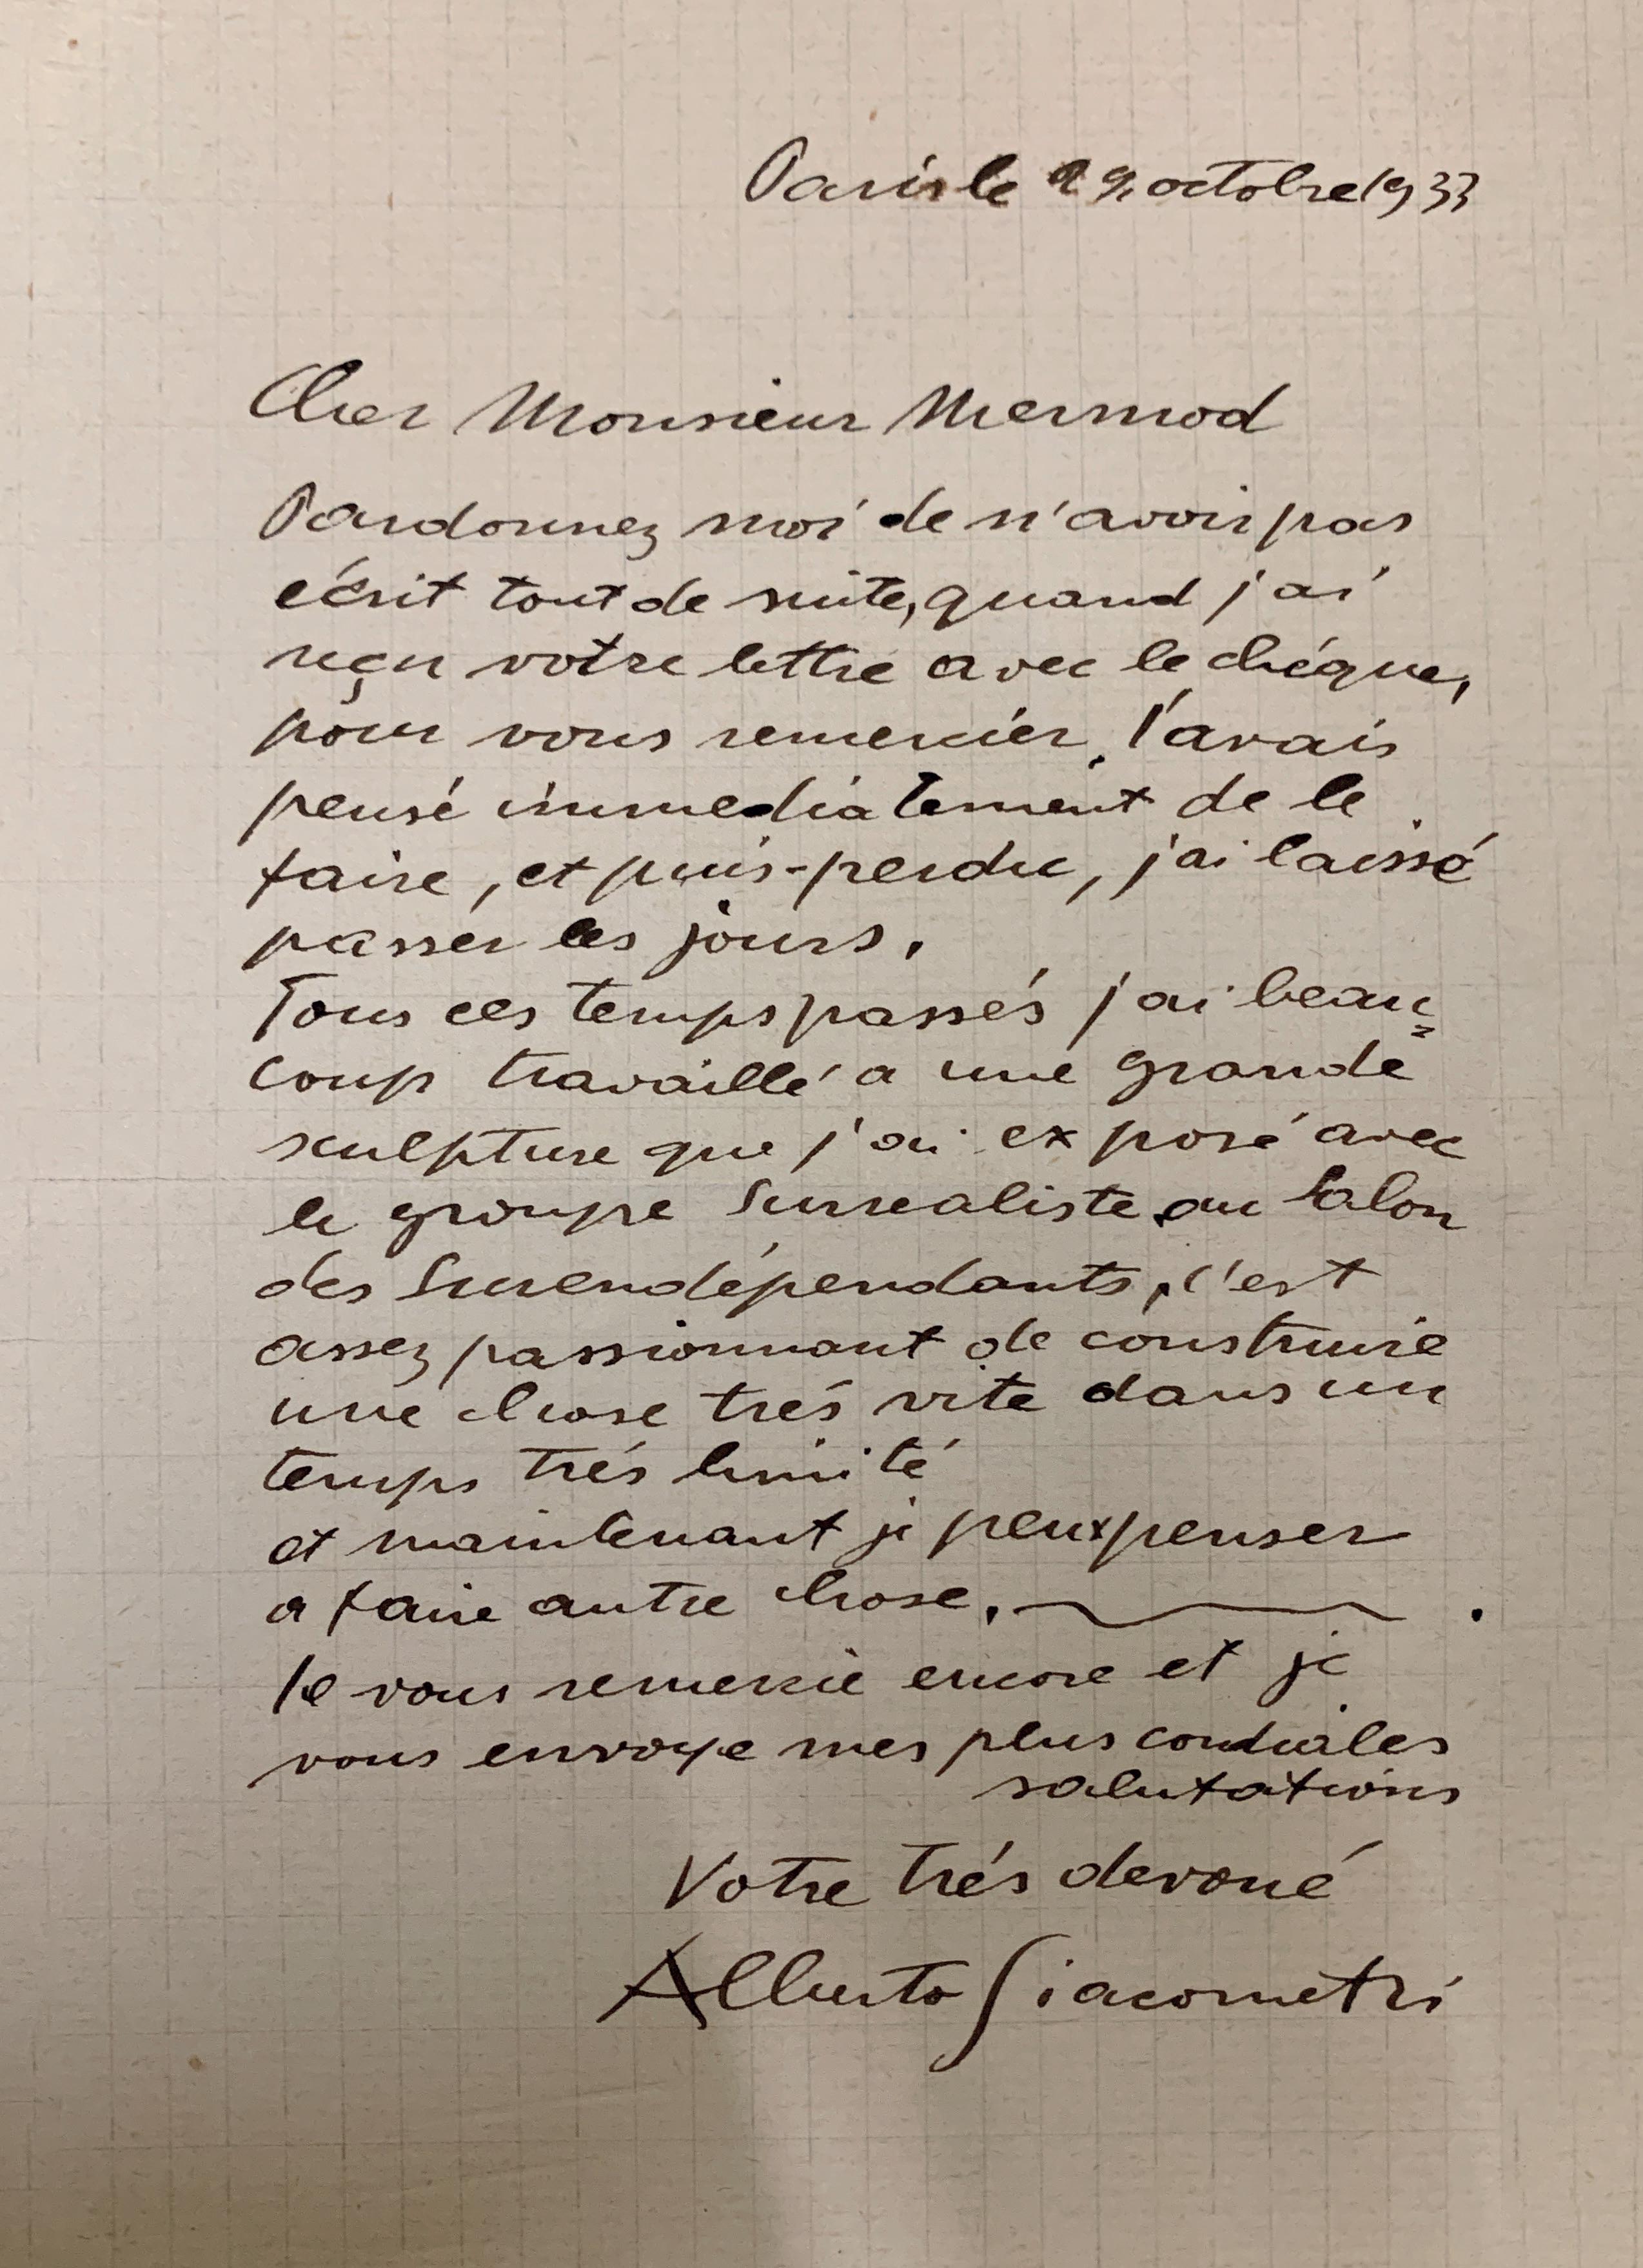 Paris le 29 octobre 1933
Cher Monsieur Mermod
Pardonnez moi de n'avoir pas
écrit tout de suite, quand j'ai
reçu votre lettre avec le chéque,
pour vous remercier. J'avais
pensé immediatement de le
faire, et puis-perdu, j'ai laissé
passer les jours.
Tous ces temps passés j'ai beau=
coup travaillé a une grande
sculpture que j'ai exposé avec
le groupe Surrealiste au Salon
des Surendépendants, c'est
assez passionnant de construire
une chose trés vite dans un
temps trés limité
et maintenant je peux penser
a faire autre chose.
Je vous remercie encore et je
vous envoye mes plus cordiales
salutations
Votre trés devoué
Alberto Giacometti